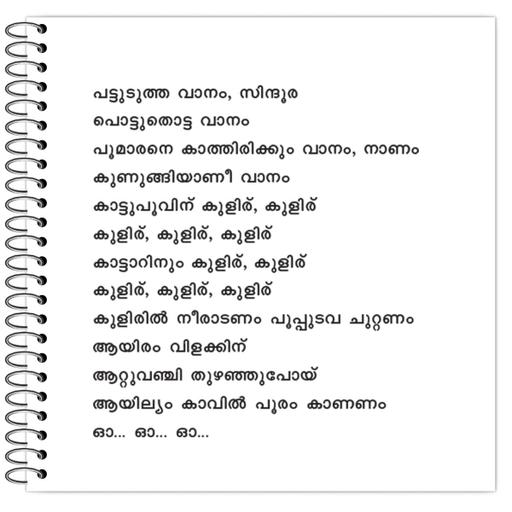 പട്ടുടുത്ത വാനം, സിന്ദൂര
പൊട്ടുതൊട്ട വാനം
പൂമാരനെ കാത്തിരിക്കും വാനം, നാണം
കുണുങ്ങിയാണീ വാനം
കാട്ടുപൂവിന് കുളിര്, കുളിര്
കുളിര്, കുളിര്, കുളിര്
കാട്ടാറിനും കുളിര്, കുളിര്
കുളിര്, കുളിര്, കുളിര്
കുളിരിൽ നീരാടണം പൂപ്പുടവ ചുറ്റണം
ആയിരം വിളക്കിന്
ആറ്റുവഞ്ചി തുഴഞ്ഞുപോയ്
ആയില്യം കാവിൽ പൂരം കാണണം
ഓ... ഓ... ഓ...